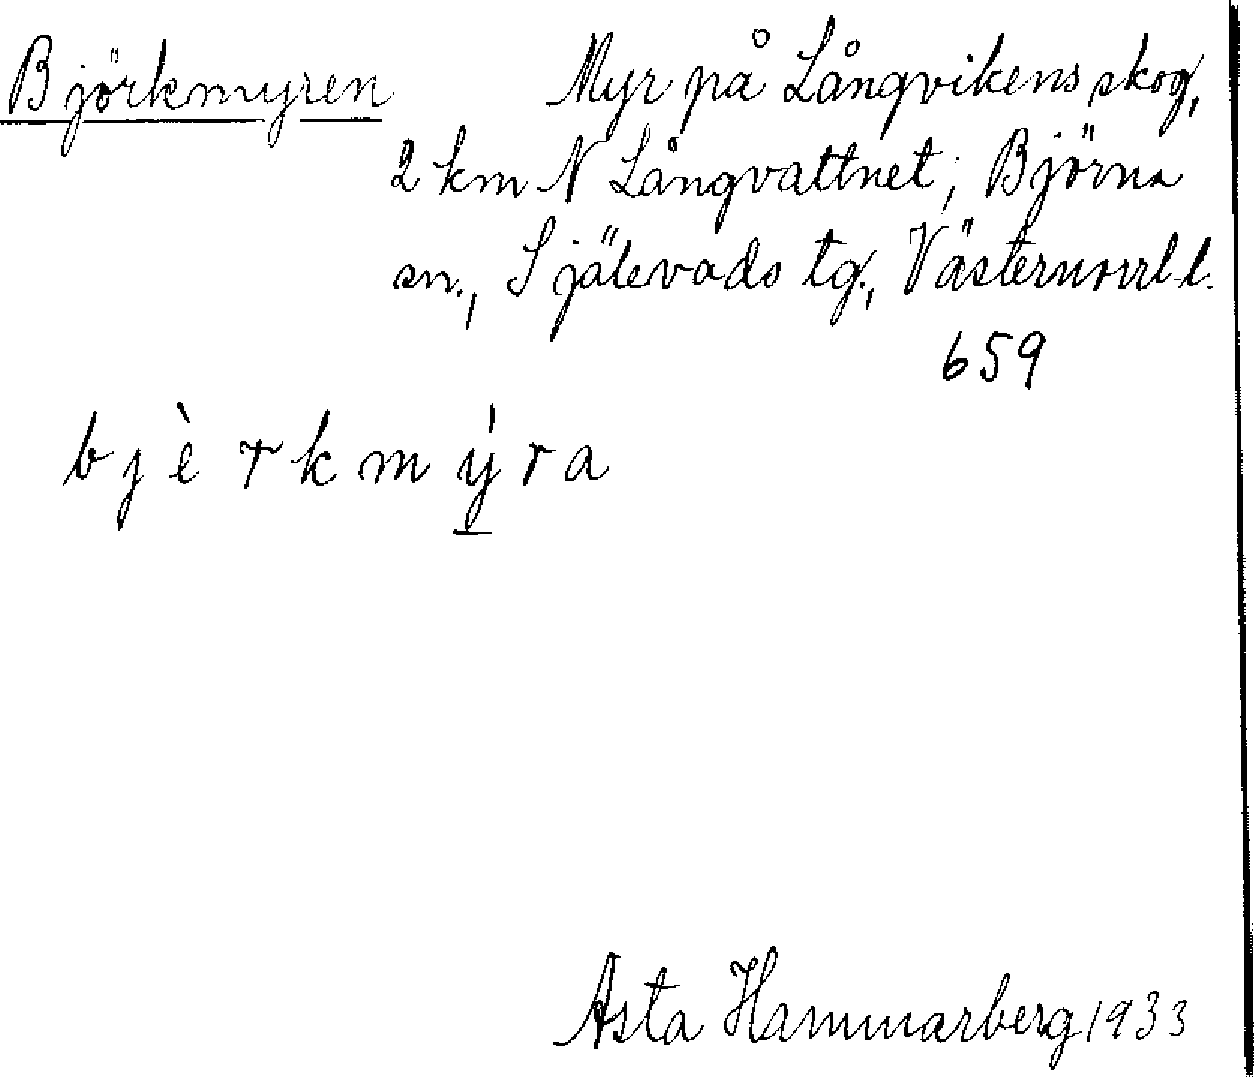 Björkmyren Myr på Långvikens skog,
2 km N Långvattnet, Björna
sn., Själevads tg., Västernorrl. l.
659
b j è r k m ý r a
Asta Hammarberg 1933